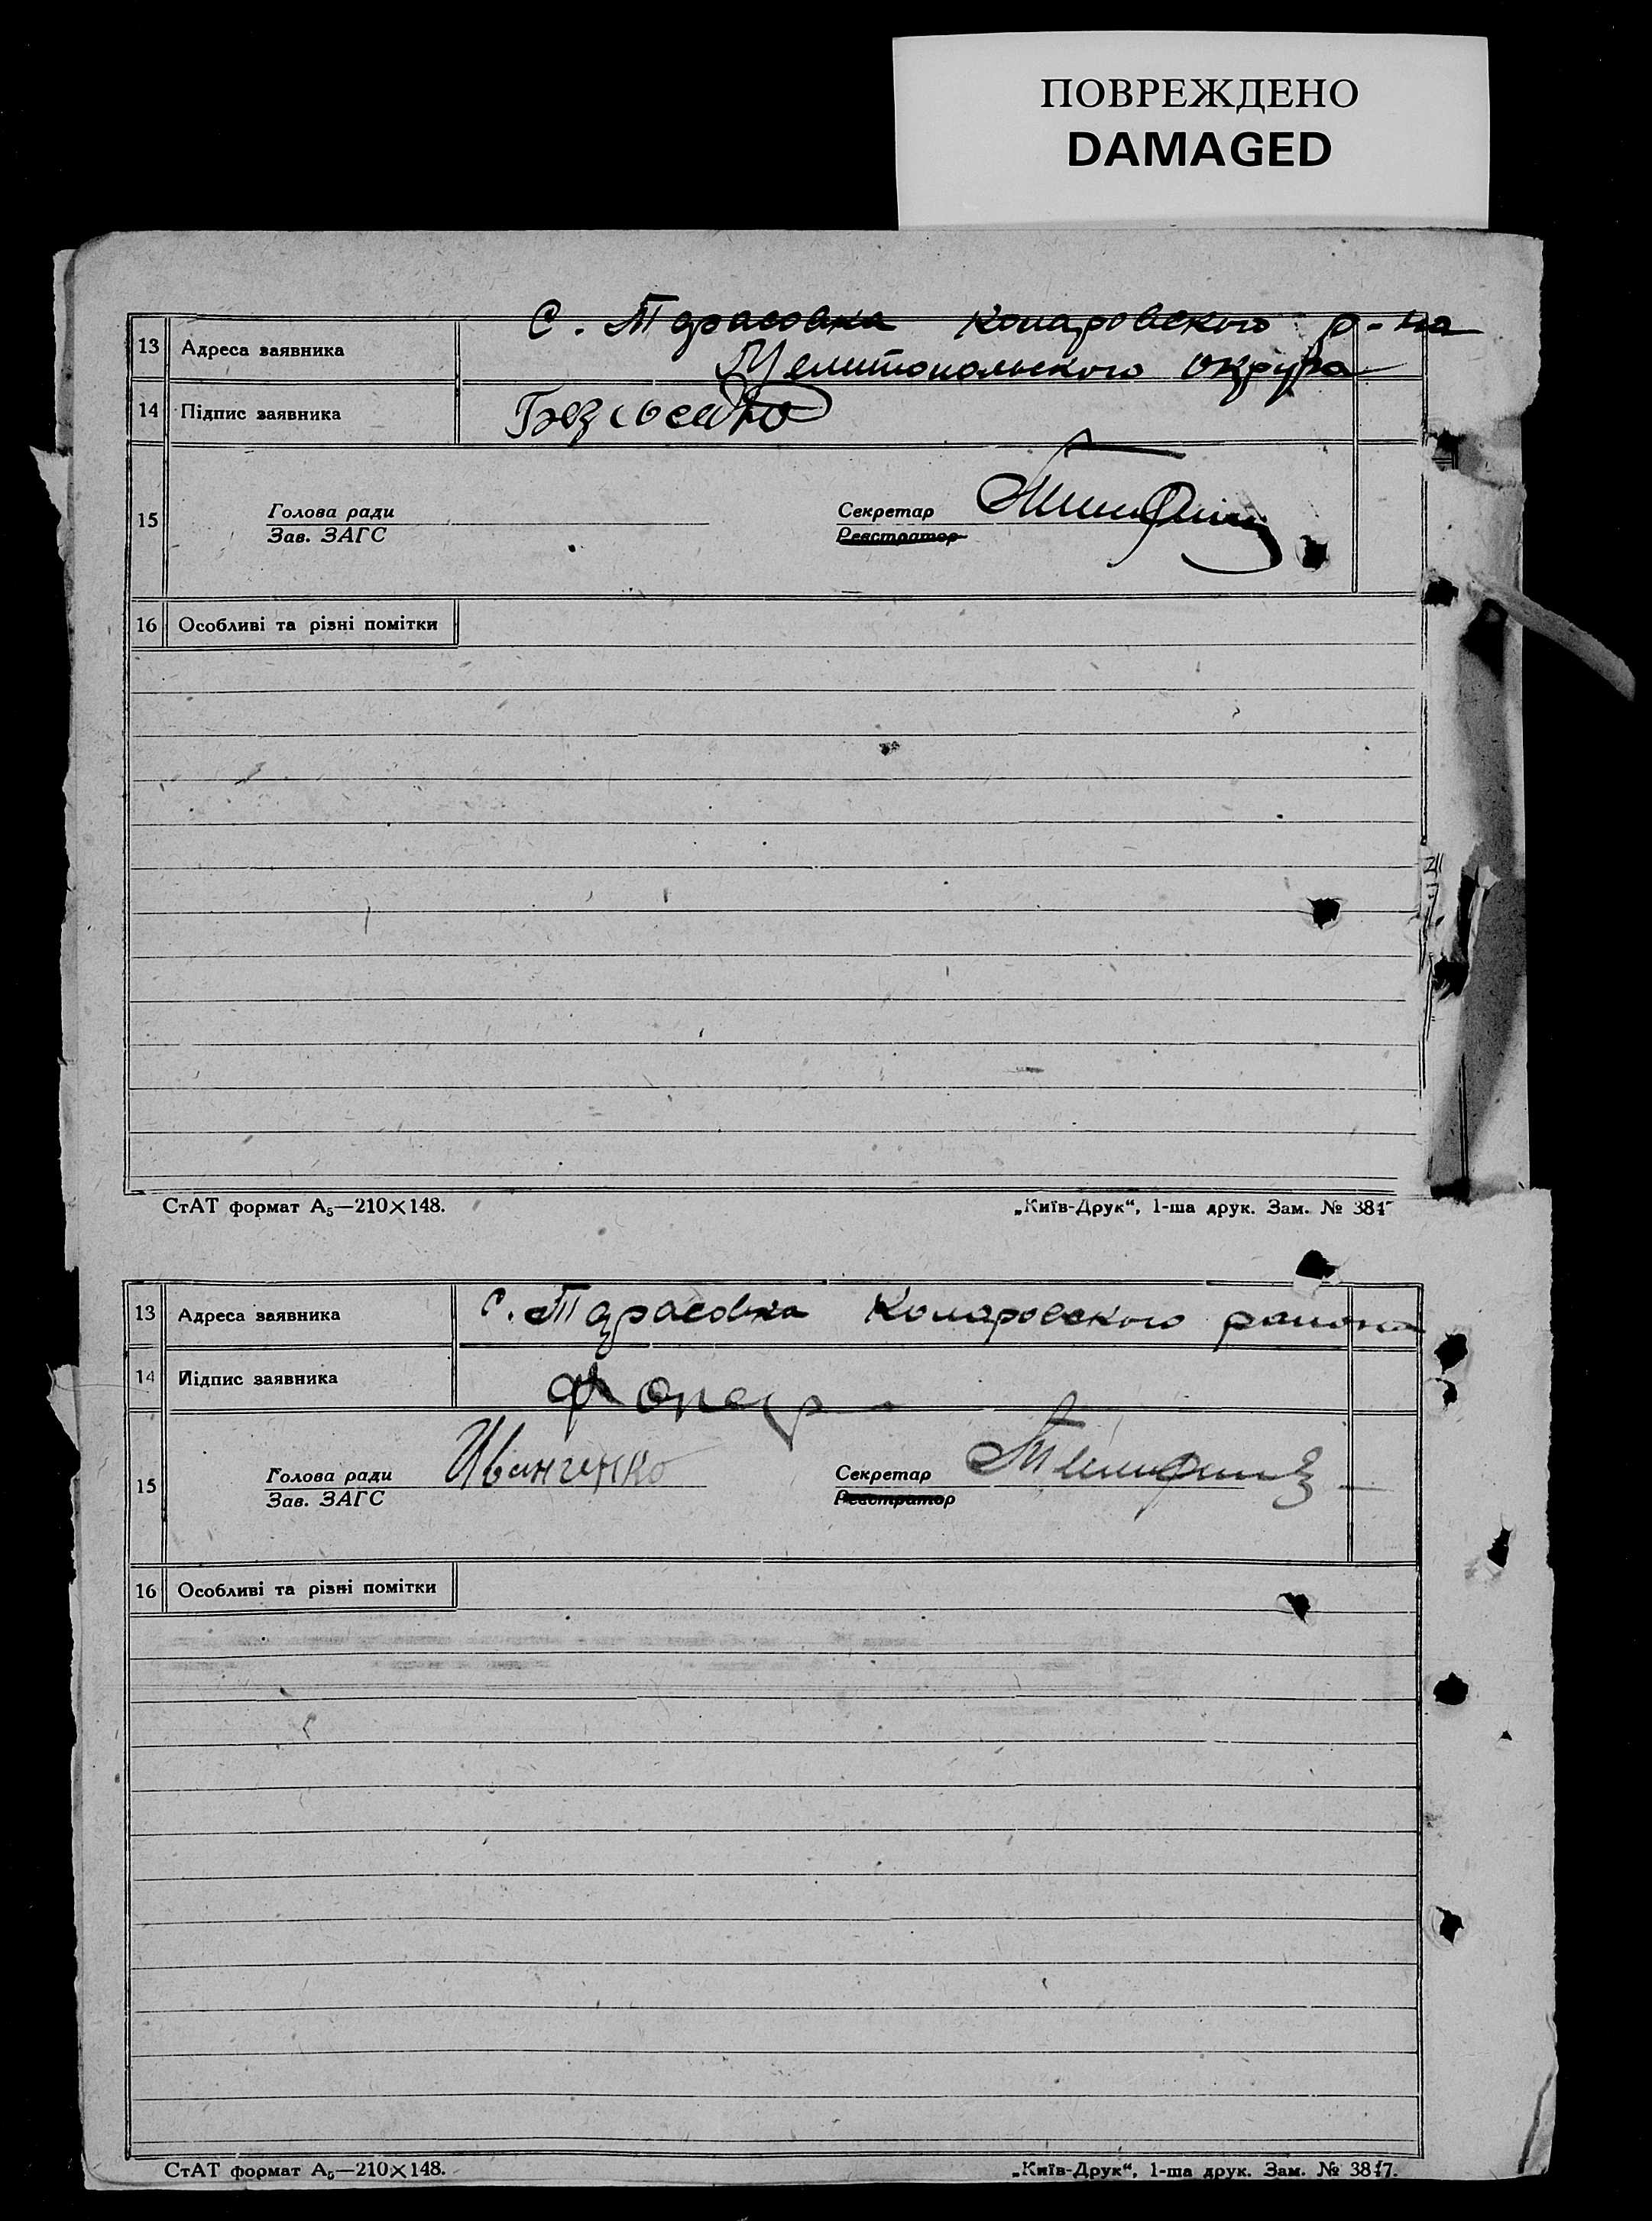 ПОВРЕЖДЕНО
DAMAGED
13 Адреса заявника С. Тарасовка Коларовского р-на
Мелитопольского округа
14 Підпис заявника
15 Голова ради Секретар
Зав. ЗАГС Реєстратор
16 Особливі та різні помітки
СтАТ формат А₅—210×148. „Київ-Друк“, 1-ша друк. Зам. № 3817
13 Адреса заявника С. Тарасовка Коларовского района
14 Підпис заявника
15 Голова ради Иванченко Секретар
Зав. ЗАГС Реєстратор
16 Особливі та різні помітки
СтАТ формат А₅—210×148. „Київ-Друк“, 1-ша друк. Зам. № 3817.